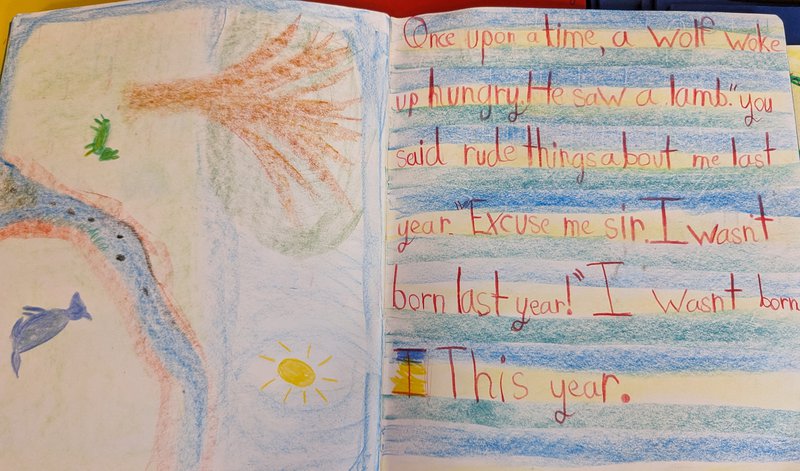 Once upon a time, a wolf woke
up hungry. He saw a lamb. "you
said rude things about me last
year. "Excuse me sir. I wasn't
born last year!" I wasnt born
I This year.